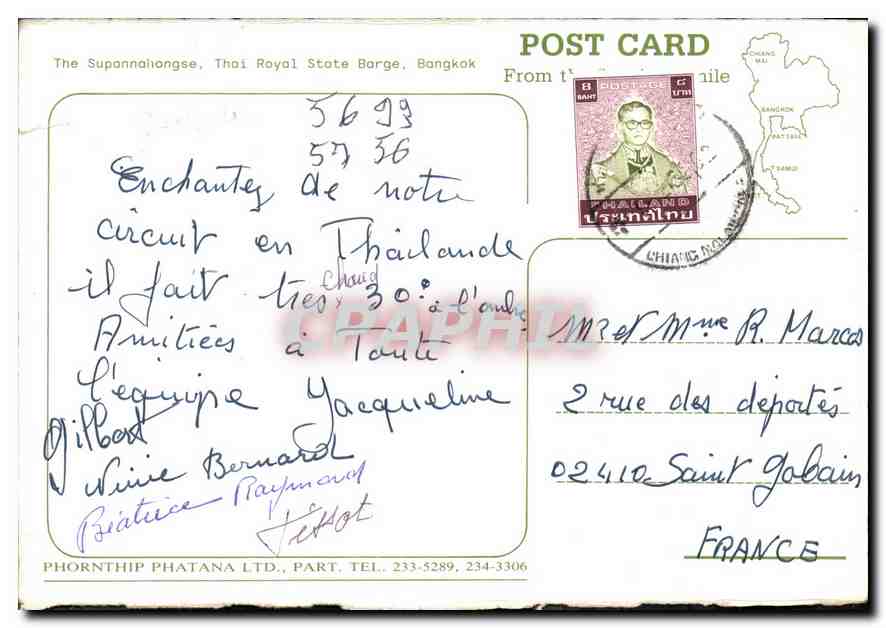 The Supannahongse, Thai Royal State Barge, Bangkok
POST CARD
From
8
BAHT
POSTAGE
๘
บาท
THAILAND
ประเทศไทย
CHIANG
MAI
BANGKOK
PATTAYA
SAMUI
CHIANG
56 99
57 56
Enchantez de notre
circuit en Thailande
il fait très chaud 30° à l'ombre
Amitiées à Toute
l'équipe Jacqueline
Gilbert
Ninie Bernard
Béatrice Raymond
Tissot
Mr et Mme R. Marcos
2 rue des déportés
02410 Saint Gobain
FRANCE
CPAPHIL
PHORNTHIP PHATANA LTD., PART. TEL. 233-5289, 234-3306